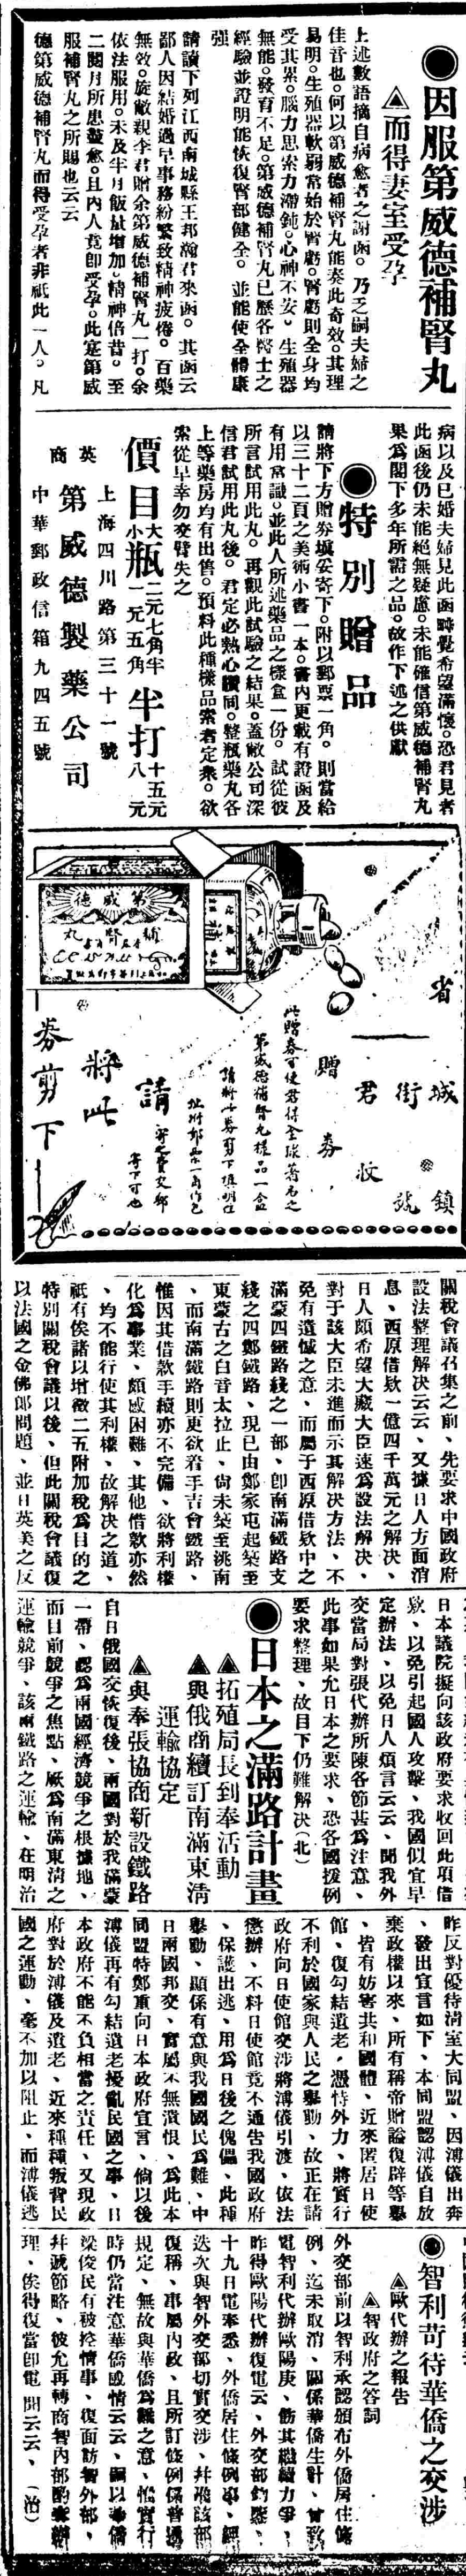 ●因服第威德補腎丸
▲而得妻室受孕
上述數語摘自病愈者之謝函。乃乏嗣夫婦之
佳音也。何以第威德補腎丸能奏此奇效。其理
易明。生殖器軟弱常始於腎虧。腎虧則全身均
受其累。腦力思索力滯鈍。心神不安。生殖器
無能。發育不足。第威德補腎丸已歷各醫士之
經驗並證明能恢復腎部健全。並能使全體康
强
請讀下列江西南城縣王邦瀚君來函。其函云
鄙人因結婚過早事務紛繁致精神疲倦。百藥
無效。旋敝親李君贈余第威德補腎丸一打。余
依法服用。未及半月飯量增加。精神倍昔。至
二閱月所患盡愈。且內人竟卽受孕。此寔第威
德補腎丸之所賜也云云
德第威德補腎丸而得受孕者非祇此一人。凡
病以及已婚夫婦見此函時覺希望滿懷。恐君見者
此函後仍未能絕無疑慮。未能確信第威德補腎丸
果爲閣下多年所需之品。故作下述之供獻
●特別贈品
請將下方贈券塡妥寄下。附以郵票一角。則當給
以三十二頁之美術小書一本。書內更載有證函及
有用常識。並此人所述藥品之樣盒一份。試從彼
所言試用此丸。再觀此試驗之結果。蓋敝公司深
信君試用此丸後。君定必熱心讚同。整瓶藥丸各
上等藥房均有出售。預料此種樣品索者定衆。欲
索從早幸勿交臂失之
價目 大瓶二元七角半 小瓶一元五角 半打 十五元 八元
上海四川路第三十一號
英商 第威德製藥公司
中華郵政信箱九四五號
第威德
補腎丸
省 城鎮
街 號
君收
贈券
此贈券可使君得全球著名之
第威德補腎丸樣品一盒
請將此券剪下塡明住
址附郵票一角作包
寄之費交郵
寄下可也
請
將此
券剪下
關稅會議召集之前、先要求中國政府
設法整理解決云云、又據日人方面消
息、西原借欵一億四千萬元之解决、
日人頗希望大藏大臣速爲設法解決、
對于該大臣未進而示其解决方法、不
免有遺憾之意、而屬于西原借欵中之
滿蒙四鐵路綫之一部、卽南滿鐵路支
綫之四鄭鐵路、現已由鄭家屯起築至
東蒙古之白音太拉止、尙未築至洮南
、而南滿鐵路則更欲着手吉會鐵路、
惟因其借款手續亦不完備、欲將利權
化爲事業、頗感困難、其他借款亦然
、均不能行使其利權、故解决之道、
祇有俟諸以增徵二五附加稅爲目的之
特別關稅會議以後、但此關稅會議復
以法國之金佛郎問題、並日英美之反
日本議院擬向該政府要求收回此項借
欵、以免引起國人攻擊、我國似宜早
定辦法、以免日人煩言云云、聞我外
交當局對張代辦所陳各節甚爲注意、
此事如果允日本之要求、恐各國援例
要求整理、故目下仍難解決（北）
●日本之滿路計畫
▲拓殖局長到奉活動
▲與俄商續訂南滿東淸
運輸協定
▲與奉張協商新設鐵路
自日俄國交恢復後、兩國對於我滿蒙
一帶、認爲兩國經濟競爭之根據地、
而目前競爭之焦點、厥爲南滿東淸之
運輸競爭、該兩鐵路之運輸、在明治
昨反對優待淸室大同盟、因溥儀出奔
、發出宣言如下、本同盟認溥儀自放
棄政權以來、所有稱帝贈謚復辟等擧
、皆有妨害共和國體、近來匿居日使
館、復勾結遺老、憑恃外力、將實行
不利於國家與人民之擧動、故正在請
政府向日使館交涉將溥儀引渡、依法
懲辦、不料日使館竟不通告我國政府
、保護出逃、用爲日後之傀儡、此種
擧動、顯係有意與我國國民爲難、中
日兩國邦交、實屬不無潰恨、爲此本
同盟特鄭重向日本政府宣言、倘以後
溥儀再有勾結遺老擾亂民國之事、日
本政府不能不負相當之責任、又現政
府對於溥儀及遺老、近來種種叛背民
國之運動、毫不加以阻止、而溥儀逃
●智利苛待華僑之交涉
▲歐代辦之報告
▲智政府之答詞
外交部前以智利承認頒布外僑居住條
例、迄未取消、關係華僑生計、曾致
電智利代辦歐陽庚、飭其繼續力爭、
昨得歐陽代辦復電云、外交部鈞鑒、
十九日電奉悉、外僑居住條例事、經
迭次與智外交部切實交涉、幷准該部
復稱、事屬內政、且所訂條例係普通
規定、無故與華僑爲難之意、惟實行
時仍當注意華僑感情云云、關以華僑
梁俊民有被控情事、復面訪智外部、
幷遞節略、彼允再轉商智內部酌核辦
理、俟得復當卽電聞云云、（治）